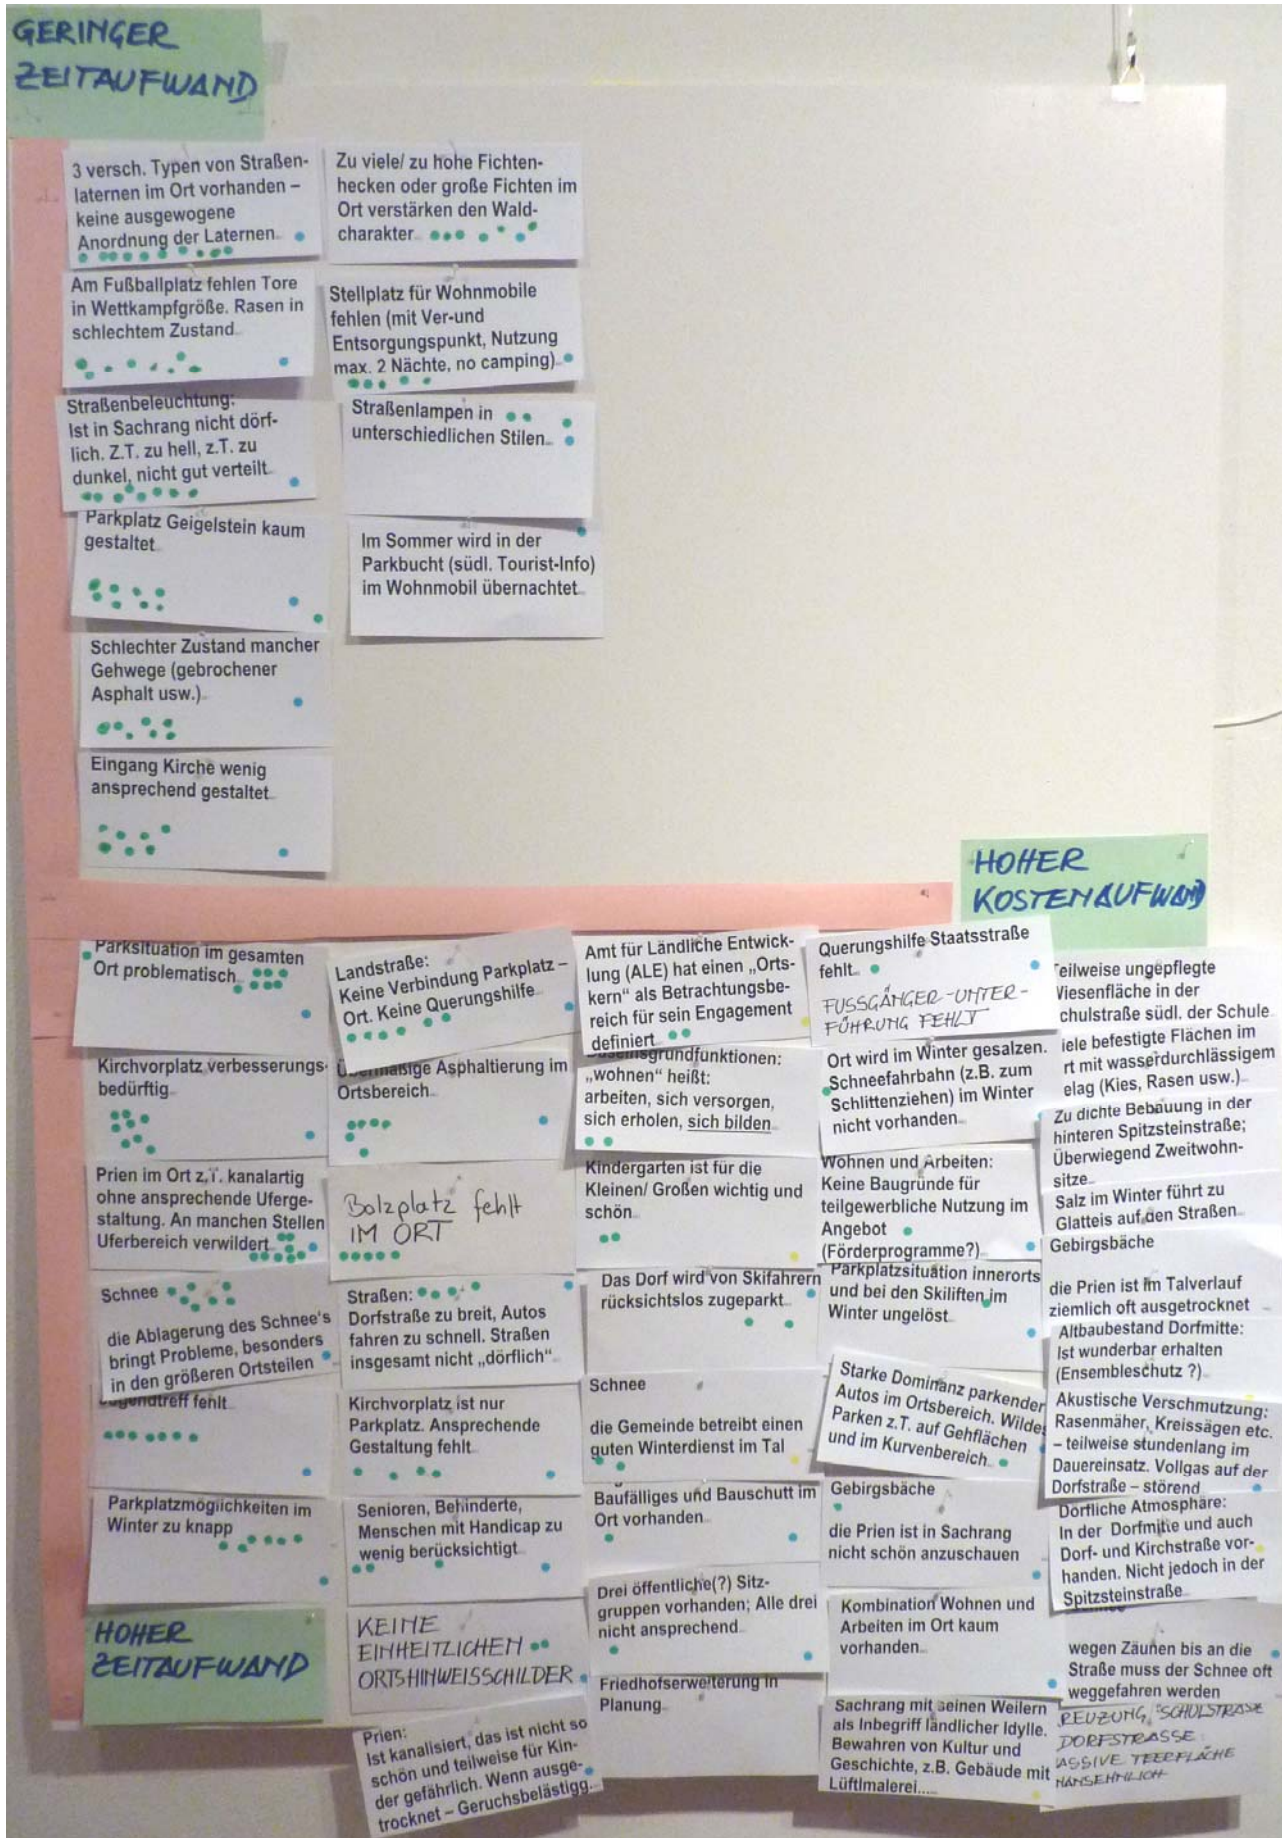 GERINGER
ZEITAUFWAND
3 versch. Typen von Straßen-
laternen im Ort vorhanden –
keine ausgewogene
Anordnung der Laternen
Am Fußballplatz fehlen Tore
in Wettkampfgröße. Rasen in
schlechtem Zustand
Straßenbeleuchtung:
Ist in Sachrang nicht dörf-
lich. Z.T. zu hell, z.T. zu
dunkel, nicht gut verteilt
Parkplatz Geigelstein kaum
gestaltet
Schlechter Zustand mancher
Gehwege (gebrochener
Asphalt usw.)
Eingang Kirche wenig
ansprechend gestaltet
Zu viele/ zu hohe Fichten-
hecken oder große Fichten im
Ort verstärken den Wald-
charakter
Stellplatz für Wohnmobile
fehlen (mit Ver-und
Entsorgungspunkt, Nutzung
max. 2 Nächte, no camping)
Straßenlampen in
unterschiedlichen Stilen
Im Sommer wird in der
Parkbucht (südl. Tourist-Info)
im Wohnmobil übernachtet
HOHER
KOSTENAUFWAND
Parksituation im gesamten
Ort problematisch
Kirchvorplatz verbesserungs-
bedürftig
Prien im Ort z.T. kanalartig
ohne ansprechende Uferge-
staltung. An manchen Stellen
Uferbereich verwildert
Schnee
die Ablagerung des Schnee's
bringt Probleme, besonders
in den größeren Ortsteilen
Jugendtreff fehlt
Parkplatzmöglichkeiten im
Winter zu knapp
HOHER
ZEITAUFWAND
Landstraße:
Keine Verbindung Parkplatz –
Ort. Keine Querungshilfe
Übermäßige Asphaltierung im
Ortsbereich
Bolzplatz fehlt
IM ORT
Straßen:
Dorfstraße zu breit, Autos
fahren zu schnell. Straßen
insgesamt nicht „dörflich“
Kirchvorplatz ist nur
Parkplatz. Ansprechende
Gestaltung fehlt
Senioren, Behinderte,
Menschen mit Handicap zu
wenig berücksichtigt
KEINE
EINHEITLICHEN
ORTSHINWEISSCHILDER
Prien:
Ist kanalisiert, das ist nicht so
schön und teilweise für Kin-
der gefährlich. Wenn ausge-
trocknet – Geruchsbelästigg...
Amt für Ländliche Entwick-
lung (ALE) hat einen „Orts-
kern“ als Betrachtungsbe-
reich für sein Engagement
definiert
Daseinsgrundfunktionen:
„wohnen“ heißt:
arbeiten, sich versorgen,
sich erholen, sich bilden
Kindergarten ist für die
Kleinen/ Großen wichtig und
schön
Das Dorf wird von Skifahrern
rücksichtslos zugeparkt
Schnee
die Gemeinde betreibt einen
guten Winterdienst im Tal
Baufälliges und Bauschutt im
Ort vorhanden
Drei öffentliche(?) Sitz-
gruppen vorhanden; Alle drei
nicht ansprechend
Friedhofserweiterung in
Planung
Querungshilfe Staatsstraße
fehlt
FUSSGÄNGER-UNTER-
FÜHRUNG FEHLT
Ort wird im Winter gesalzen.
Schneefahrbahn (z.B. zum
Schlittenziehen) im Winter
nicht vorhanden
Wohnen und Arbeiten:
Keine Baugründe für
teilgewerbliche Nutzung im
Angebot
(Förderprogramme?)
Parkplatzsituation innerorts
und bei den Skiliften im
Winter ungelöst
Starke Dominanz parkender
Autos im Ortsbereich. Wildes
Parken z.T. auf Gehflächen
und im Kurvenbereich
Gebirgsbäche
die Prien ist in Sachrang
nicht schön anzuschauen
Kombination Wohnen und
Arbeiten im Ort kaum
vorhanden
Sachrang mit seinen Weilern
als Inbegriff ländlicher Idylle.
Bewahren von Kultur und
Geschichte, z.B. Gebäude mit
Lüftlmalerei.....
Teilweise ungepflegte
Wiesenfläche in der
chulstraße südl. der Schule
iele befestigte Flächen im
rt mit wasserdurchlässigem
elag (Kies, Rasen usw.)
Zu dichte Bebauung in der
hinteren Spitzsteinstraße;
Überwiegend Zweitwohn-
sitze
Salz im Winter führt zu
Glatteis auf den Straßen
Gebirgsbäche
die Prien ist im Talverlauf
ziemlich oft ausgetrocknet
Altbaubestand Dorfmitte:
Ist wunderbar erhalten
(Ensembleschutz ?)
Akustische Verschmutzung:
Rasenmäher, Kreissägen etc.
– teilweise stundenlang im
Dauereinsatz. Vollgas auf der
Dorfstraße – störend
Dörfliche Atmosphäre:
In der Dorfmitte und auch
Dorf- und Kirchstraße vor-
handen. Nicht jedoch in der
Spitzsteinstraße
wegen Zäunen bis an die
Straße muss der Schnee oft
weggefahren werden
REUZUNG, SCHULSTRASSE
DORFSTRASSE:
ASSIVE TEERFLÄCHE
NANSEHNLICH